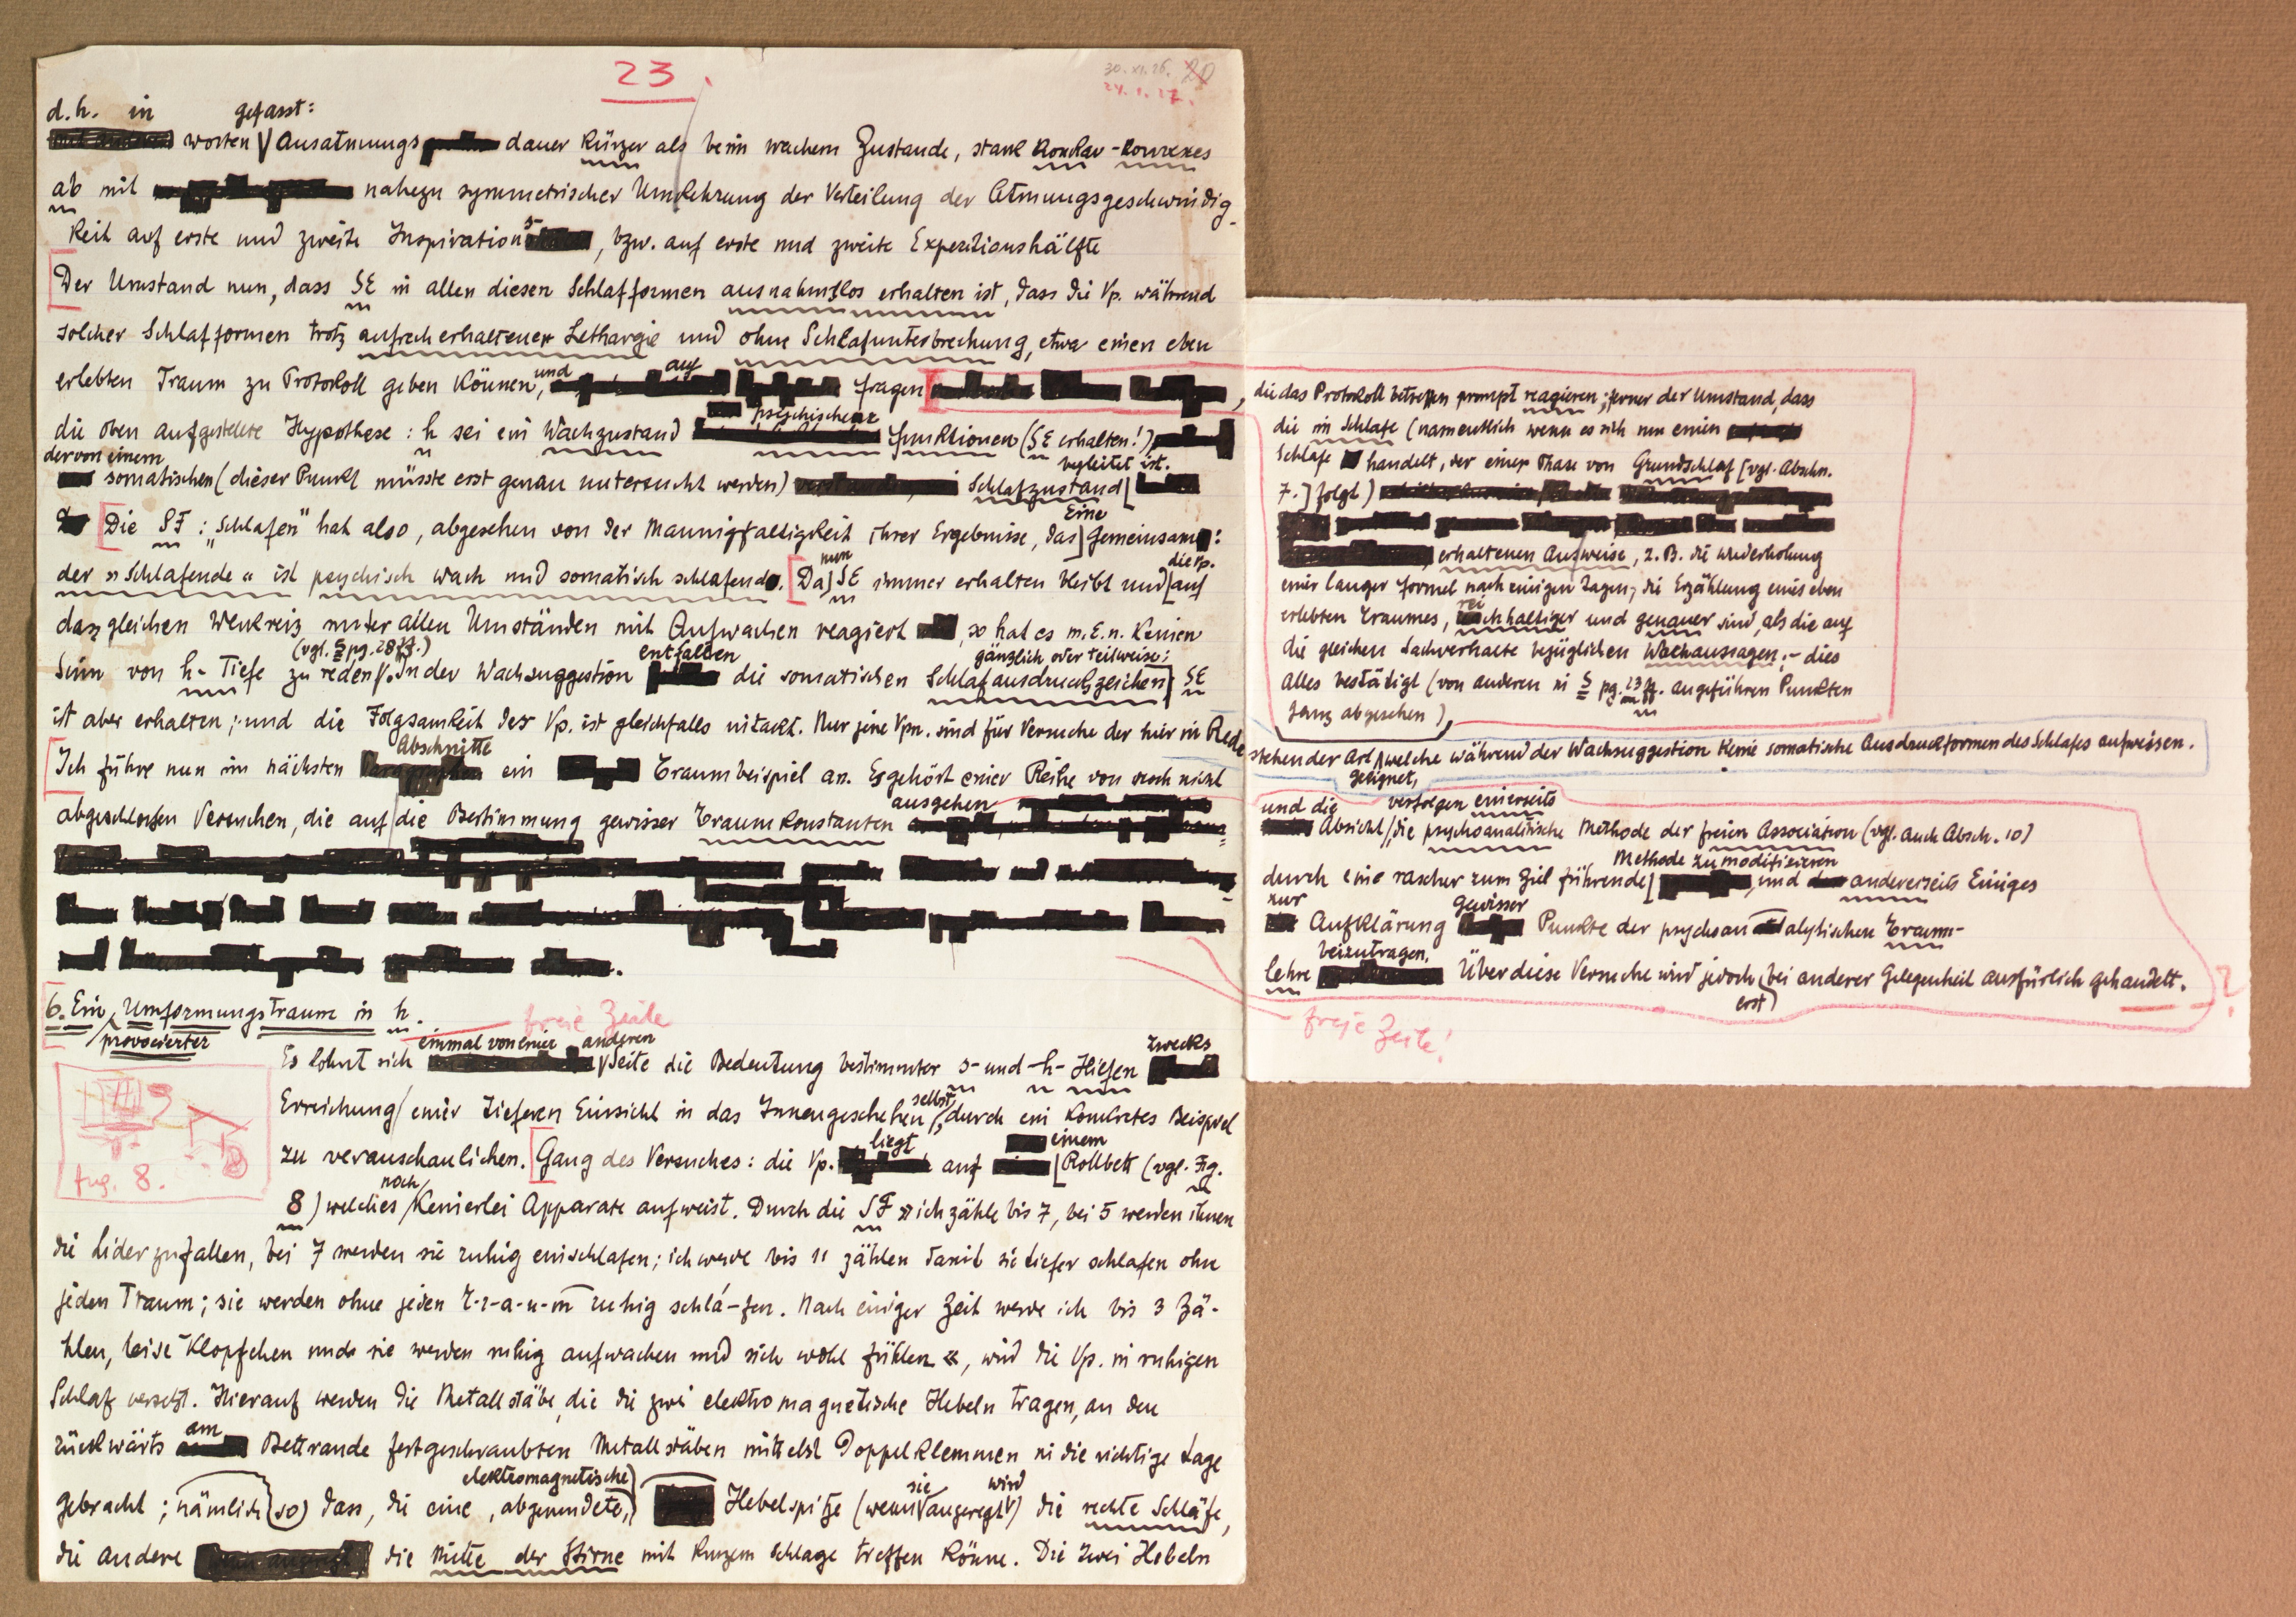 23.
30. XI. 26. 20
24. 1. 27.
d. h. in gefasst:
worten Ausatmungs dauer kürzer als beim wachem Zustande, stark konkav-konvexes
ab mit nahezu symmetrischer Umkehrung der Verteilung der Atmungsgeschwindig-
keit auf erste und zweite Inspirations, bzw. auf erste und zweite Experitionshälfte
Der Umstand nun, dass SE in allen diesen Schlafformen ausnahmslos erhalten ist, dass die Vp. während
solcher Schlafformen trotz aufrecherhaltener Lethargie und ohne Schlafunterbrechung, etwa einen eben
erlebten Traum zu Protokoll geben können, und auf fragen,
die das Protokoll betreffen prompt reagieren; ferner der Umstand, dass
die im Schlafe (namentlich wenn es sich um einen
Schlafe handelt, der einer Phase von Grundschlaf [vgl. Abschn.
7.] folgt)
erhaltenen Ausweise, z. B. die Wiederholung
einer langer Formel nach einigen Tagen, die Erzählung eines eben
erlebten Traumes, reichhaltiger und genauer sind, als die auf
die gleichen Sachverhalte bezüglichen Wachaussagen; - dies
alles bestätigt (von anderen in S pg. 23 ff. angeführen Punkten
ganz abgesehen),
die oben aufgestellte Hypothese: h sei ein Wachzustand psychischer Funktionen (SE erhalten!)
der von einem begleitet ist.
somatischen (dieser Punkt müsste erst genau untersucht werden) Schlafzustand
Die SF: „Schlafen" hat also, abgesehen von der Mannigfaltigkeit ihrer Ergebnisse, das Eine Gemeinsam:
der »Schlafende« ist psychisch wach und somatisch schlafend. Da nun SE immer erhalten bleibt und die Vp. auf
dazgleichen Wekreiz unter allen Umständen mit Aufwachen reagiert, so hat es m. E. n. keinen
Sinn von h-Tiefe zu reden (vgl. S pg. 28 ff.). In der Wachsuggestion entfallen die somatischen Schlafausdruckszeichen gänzlich oder teilweise; SE
ist aber erhalten; und die Folgsamkeit der Vp. ist gleichfalls intackt. Nur jene Vpn. sind für Versuche der hier in Rede
stehender Art geeignet, welche während der Wachsuggestion keine somatische Ausdruckformen des Schlafes aufweisen.
Ich führe nun im nächsten Abschnitte ein Traumbeispiel an. Es gehört einer Reihe von noch nicht
abgeschlossen Versuchen, die auf die Bestimmung gewisser Traumkonstanten ausgehen
und die Absicht verfolgen einerseits die psychoanalitische Methode der freien Association (vgl. auch Absch. 10)
durch eine rascher zum Ziel führende Methode zu modifizieren, und andererseits Einiges
zur Aufklärung gewisser Punkte der psychoanalytischen Traum-
lehre beizutragen. Über diese Versuche wird jedoch erst bei anderer Gelegenheit ausfürlich gehandelt. ?
freie Zeile!
6. Ein provocierter Umformungstraum in h.
freie Zeile
Es lohnt sich einmal von einer anderen Seite die Bedeutung bestimmter s- und -h- Tiefen zwecks
Erreichung einer tieferen Einsicht in das Innengeschehen selbst, durch ein konkretes Beispiel
zu veranschaulichen. Gang des Versuches: die Vp. liegt auf einem Rollbett (vgl. Fig.
Fig. 8.
8) welches noch keinerlei Apparate aufweist. Durch die SF »ich zähle bis 7, bei 5 werden ihnen
die Lider zufallen, bei 7 werden sie ruhig einschlafen; ich werde bis 11 zählen damit sie tiefer schlafen ohne
jeden Traum; sie werden ohne jeden T-r-a-u-m ruhig schla-fen. Nach einiger Zeit werde ich bis 3 zä-
hlen, leise klopfchen und sie werden ruhig aufwachen und sich wohl fühlen«, wird die Vp. in ruhigen
Schlaf versetzt. Hierauf werden die Metallstäbe, die die zwei elektromagnetische Hebeln tragen, an den
rückwärts am Bettrande festgeschraubten Metallstäben mittelst Doppelklemmen in die richtige Lage
gebracht; nämlich so dass, die eine, abgerundete, elektromagnetische Hebelspitze (wenn sie angeregt wird) die rechte Schläfe,
die andere die Mitte der Stirne mit kurzem Schlage treffen könne. Die zwei Hebeln